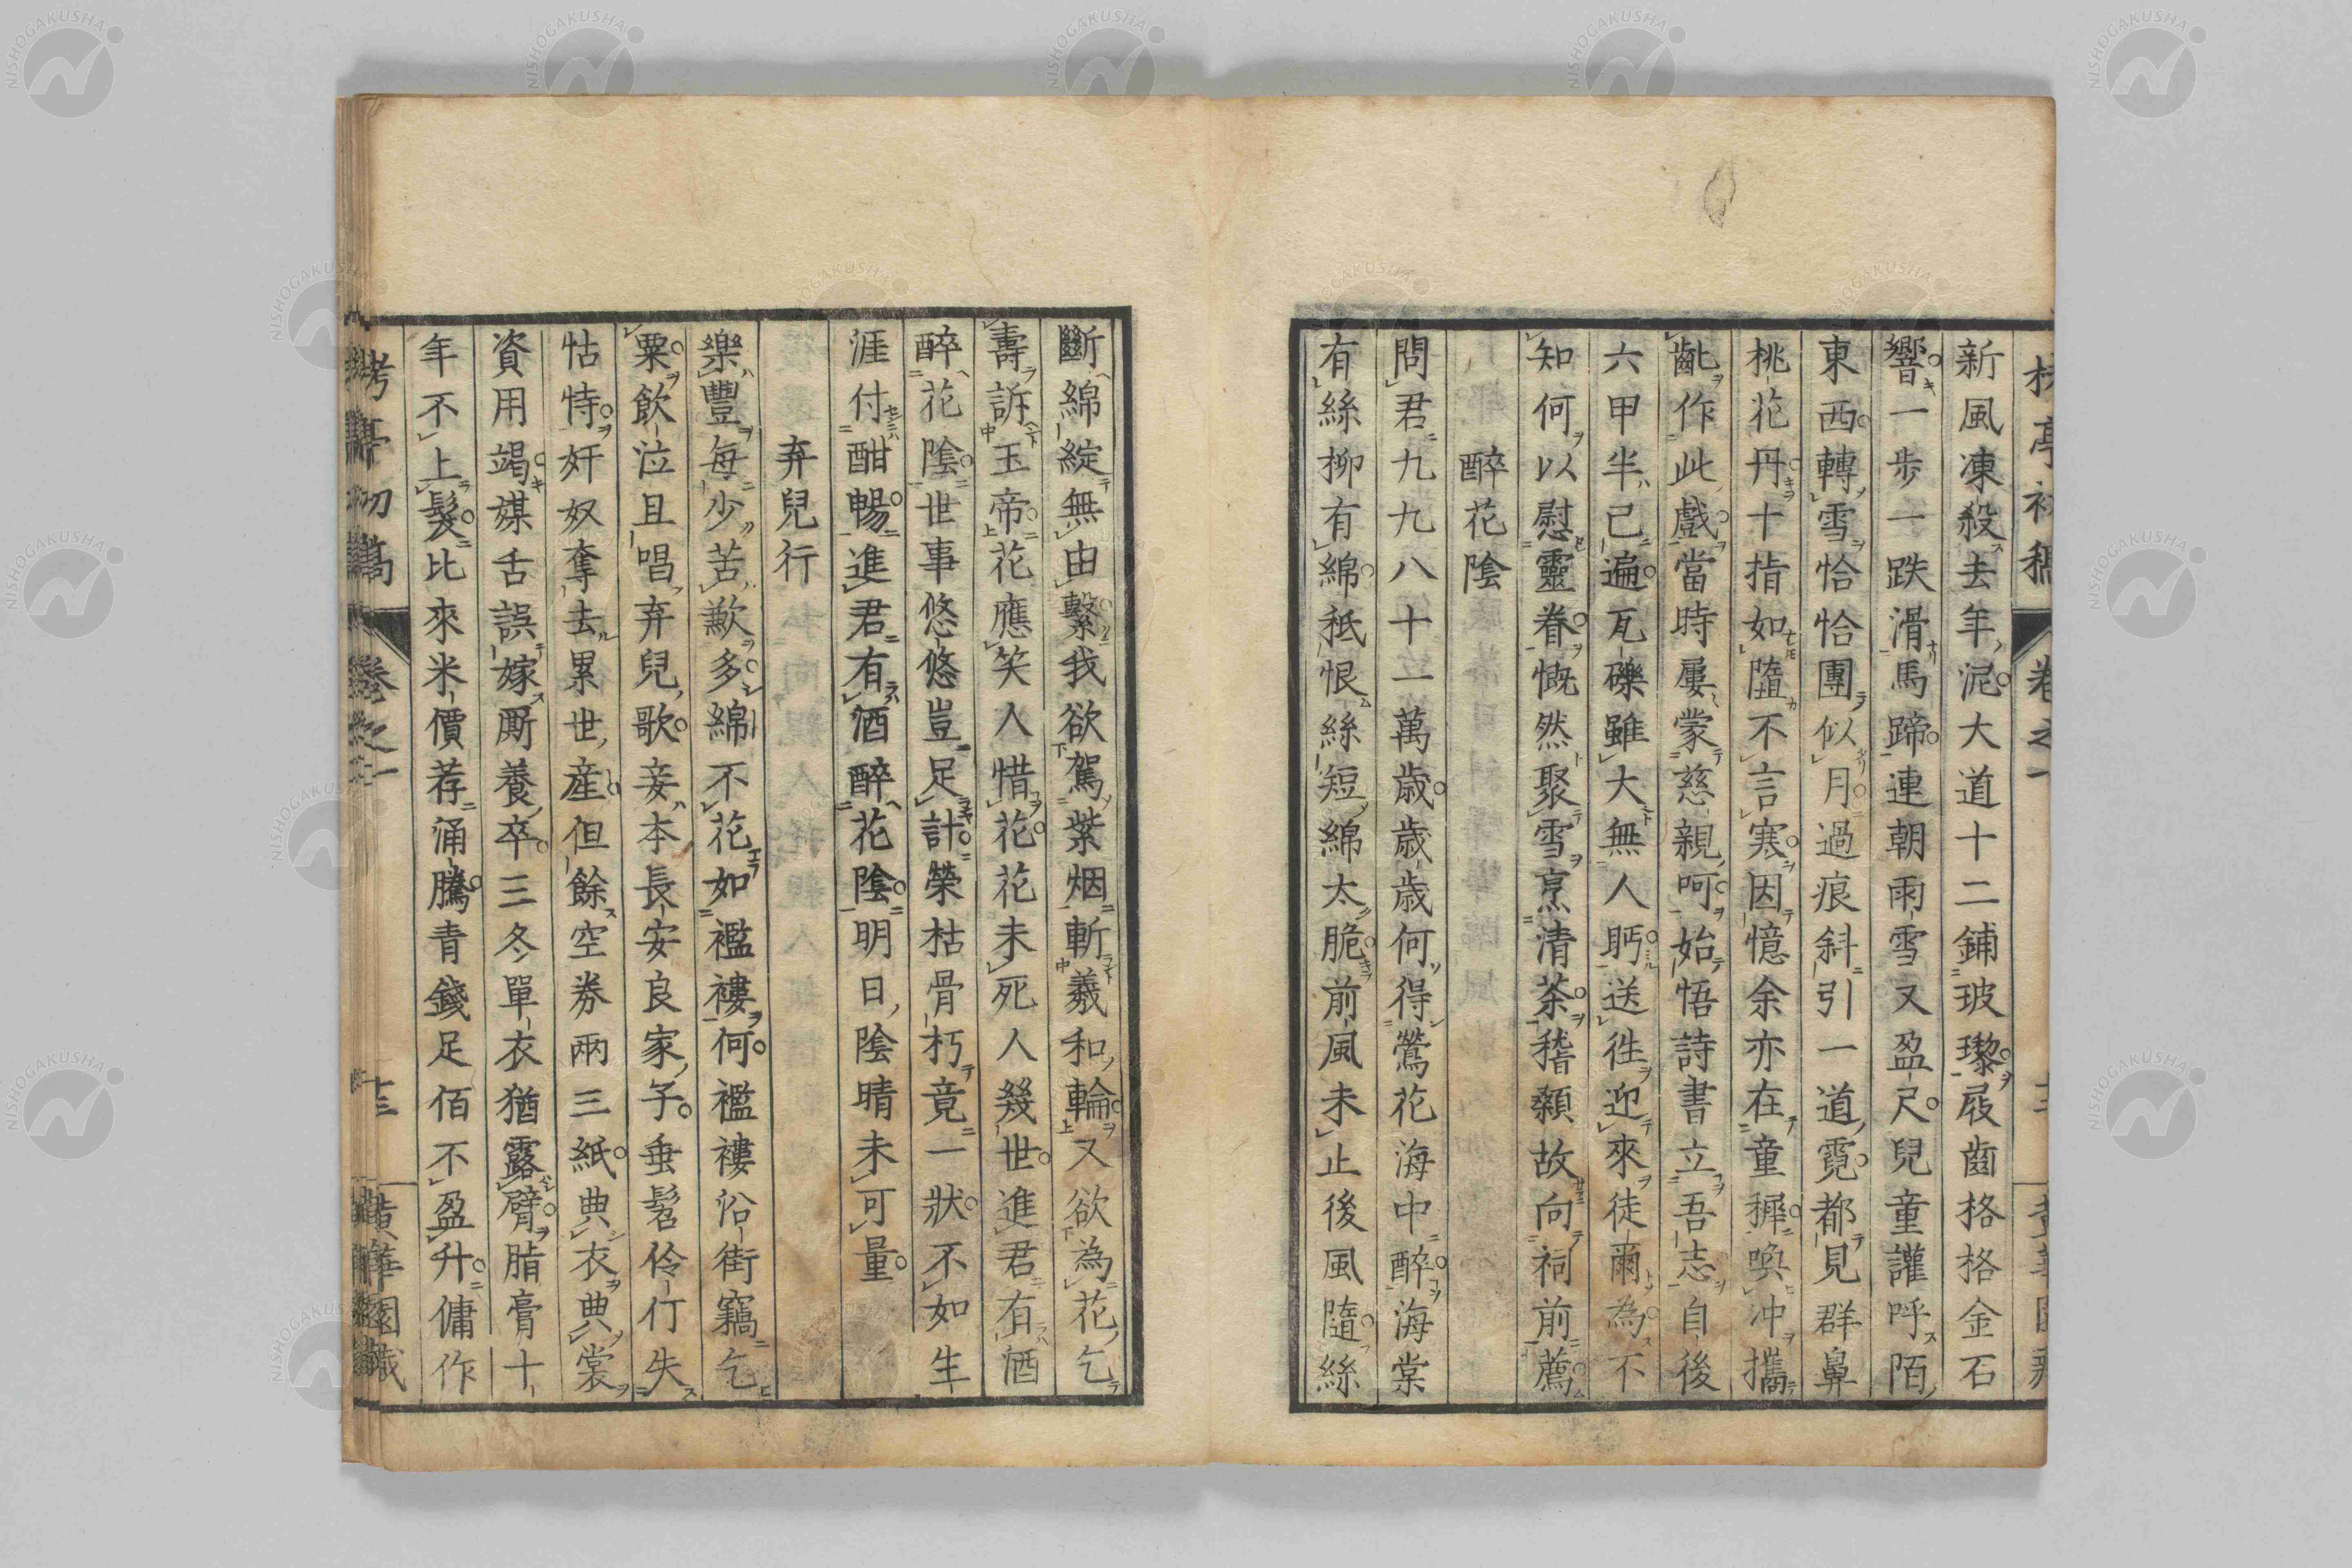 新風凍殺去年泥大道十二鋪玻瓈屐齒格格金石
響一步一跌滑馬蹄連朝雨雪又盈尺兒童讙呼陌
東西轉雪恰恰團似月過痕斜引一道霓都見群鼻
桃花丹十指如墮不言寒因憶余亦在童穉喚冲攜
齔作此戲當時屢蒙慈親呵始悟詩書立吾志自後
六甲半已遍瓦礫雖大無人眄送往迎來徒爾為不
知何以慰靈眷慨然聚雪烹清茶稽顙故向祠前薦
醉花陰
問君九九八十一萬歲歲歲何得鶯花海中醉海棠
有絲柳有綿秖恨絲短綿太脆前風未止後風隨絲
斷綿綻無由繫我欲駕紫烟斬羲和輪又欲為花乞
壽訴玉帝花應笑人惜花花未死人幾世進君有酒
醉花陰世事悠悠豈足計榮枯骨朽竟一狀不如生
涯付酣暢進君有酒醉花陰明日陰晴未可量
弃兒行
樂豐每少苦歉多綿不花如襤褸何襤褸沿街竊乞
粟飲泣且唱弃兒歌妾本長安良家子垂髫伶仃失
怙恃奸奴奪去累世産但餘空券兩三紙典衣典裳
資用竭媒舌誤嫁厮養卒三冬單衣猶露臂脂膏十
年不上髮比來米價荐涌騰青錢足佰不盈升傭作
卷之一
十三